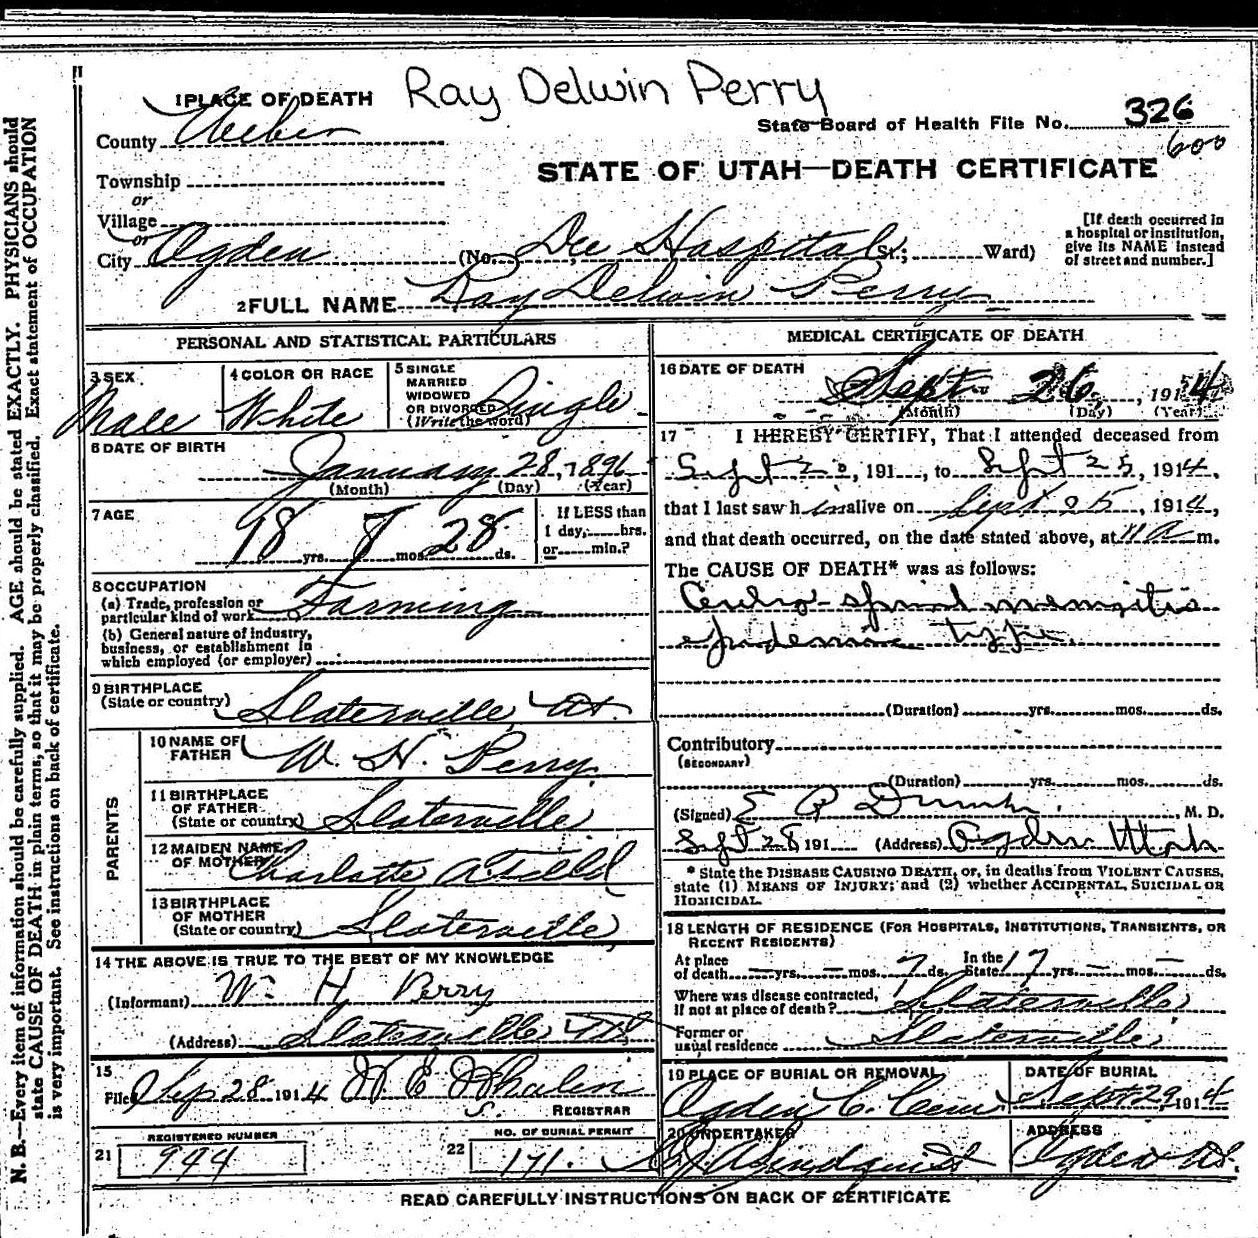 1 PLACE OF DEATH Ray Delwin Perry
State Board of Health File No. 326
600
County Weber
STATE OF UTAH—DEATH CERTIFICATE
Township
or
Village
or
City Ogden (No. Dee Hospital St.; Ward)
[If death occurred in
a hospital or institution,
give its NAME instead
of street and number.]
2 FULL NAME Ray Delwin Perry
PERSONAL AND STATISTICAL PARTICULARS
3 SEX
Male
4 COLOR OR RACE
White
5 SINGLE
MARRIED
WIDOWED
OR DIVORCED
(Write the word)
Single
6 DATE OF BIRTH
January 28, 1896
(Month) (Day) (Year)
7 AGE
18 yrs. 7 mos. 28 ds.
If LESS than
1 day, hrs.
or min.?
8 OCCUPATION
(a) Trade, profession or
particular kind of work Farming
(b) General nature of industry,
business, or establishment in
which employed (or employer)
9 BIRTHPLACE
(State or country) Slaterville Ut.
PARENTS
10 NAME OF
FATHER W. H. Perry
11 BIRTHPLACE
OF FATHER
(State or country) Slaterville
12 MAIDEN NAME
OF MOTHER Charlotte A
13 BIRTHPLACE
OF MOTHER
(State or country) Slaterville
14 THE ABOVE IS TRUE TO THE BEST OF MY KNOWLEDGE
(Informant) Wm H Perry
(Address) Slaterville Ut
15
Filed Sep 28 1914 W E Whalen
S. REGISTRAR
REGISTERED NUMBER
21 944
NO. OF BURIAL PERMIT
22 171.
MEDICAL CERTIFICATE OF DEATH
16 DATE OF DEATH
Sept 26, 1914
(Month) (Day) (Year)
17 I HEREBY CERTIFY, That I attended deceased from
Sept 20, 191 , to Sept 25, 1914,
that I last saw him alive on Sept 25, 1914,
and that death occurred, on the date stated above, at 11 A m.
The CAUSE OF DEATH* was as follows:
Cerebro-spinal meningitis
epidemic type
(Duration) yrs. mos. ds.
Contributory
(SECONDARY)
(Duration) yrs. mos. ds.
(Signed) E P , M. D.
Sept 28 191 (Address) Ogden Utah
* State the DISEASE CAUSING DEATH, or, in deaths from VIOLENT CAUSES,
state (1) MEANS OF INJURY; and (2) whether ACCIDENTAL, SUICIDAL OR
HOMICIDAL.
18 LENGTH OF RESIDENCE (FOR HOSPITALS, INSTITUTIONS, TRANSIENTS, OR
RECENT RESIDENTS)
At place
of death — yrs. — mos. 7 ds. In the
State 17 yrs. — mos. — ds.
Where was disease contracted,
If not at place of death? Slaterville
Former or
usual residence Slaterville
19 PLACE OF BURIAL OR REMOVAL
Ogden C. Cem.
DATE OF BURIAL
Sept 29, 1914
20 UNDERTAKER
Lindquist
ADDRESS
Ogden Ut.
READ CAREFULLY INSTRUCTIONS ON BACK OF CERTIFICATE
N. B.—Every item of information should be carefully supplied. AGE should be stated EXACTLY. PHYSICIANS should
state CAUSE OF DEATH in plain terms, so that it may be properly classified. Exact statement of OCCUPATION
is very important. See instructions on back of certificate.